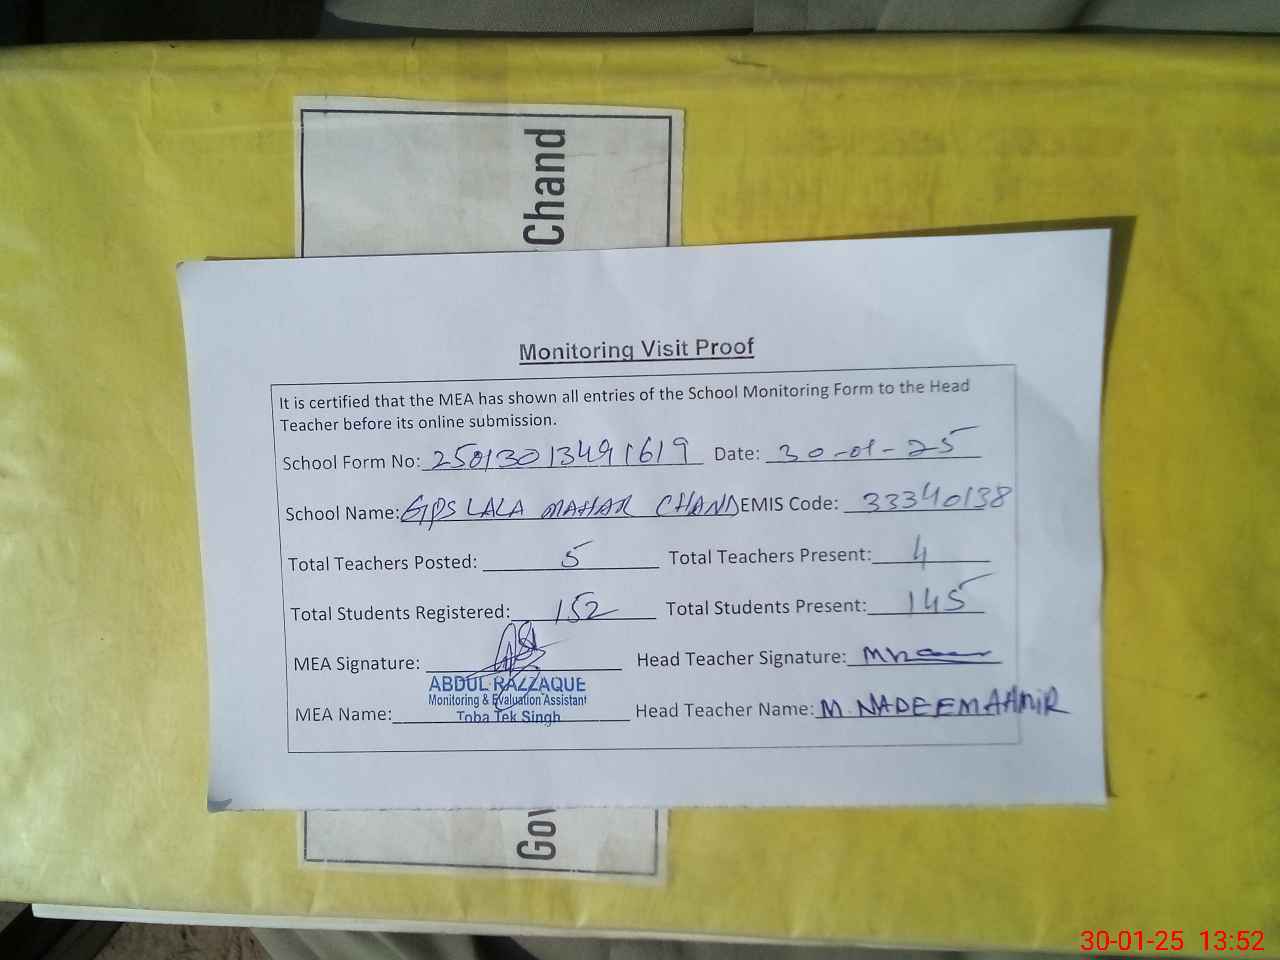 Chand
Monitoring Visit Proof
It is certified that the MEA has shown all entries of the School Monitoring Form to the Head
Teacher before its online submission.
School Form No: 25013013491619 Date: 30-01-25
School Name: GPS LALA MAHAR CHAND EMIS Code: 33340138
Total Teachers Posted: 5 Total Teachers Present: 4
Total Students Registered: 152 Total Students Present: 145
MEA Signature: Head Teacher Signature:
ABDUL RAZZAQUE
Monitoring & Evaluation Assistant
MEA Name: Toba Tek Singh Head Teacher Name: M. NADEEM AAMIR
Gov
30-01-25 13:52